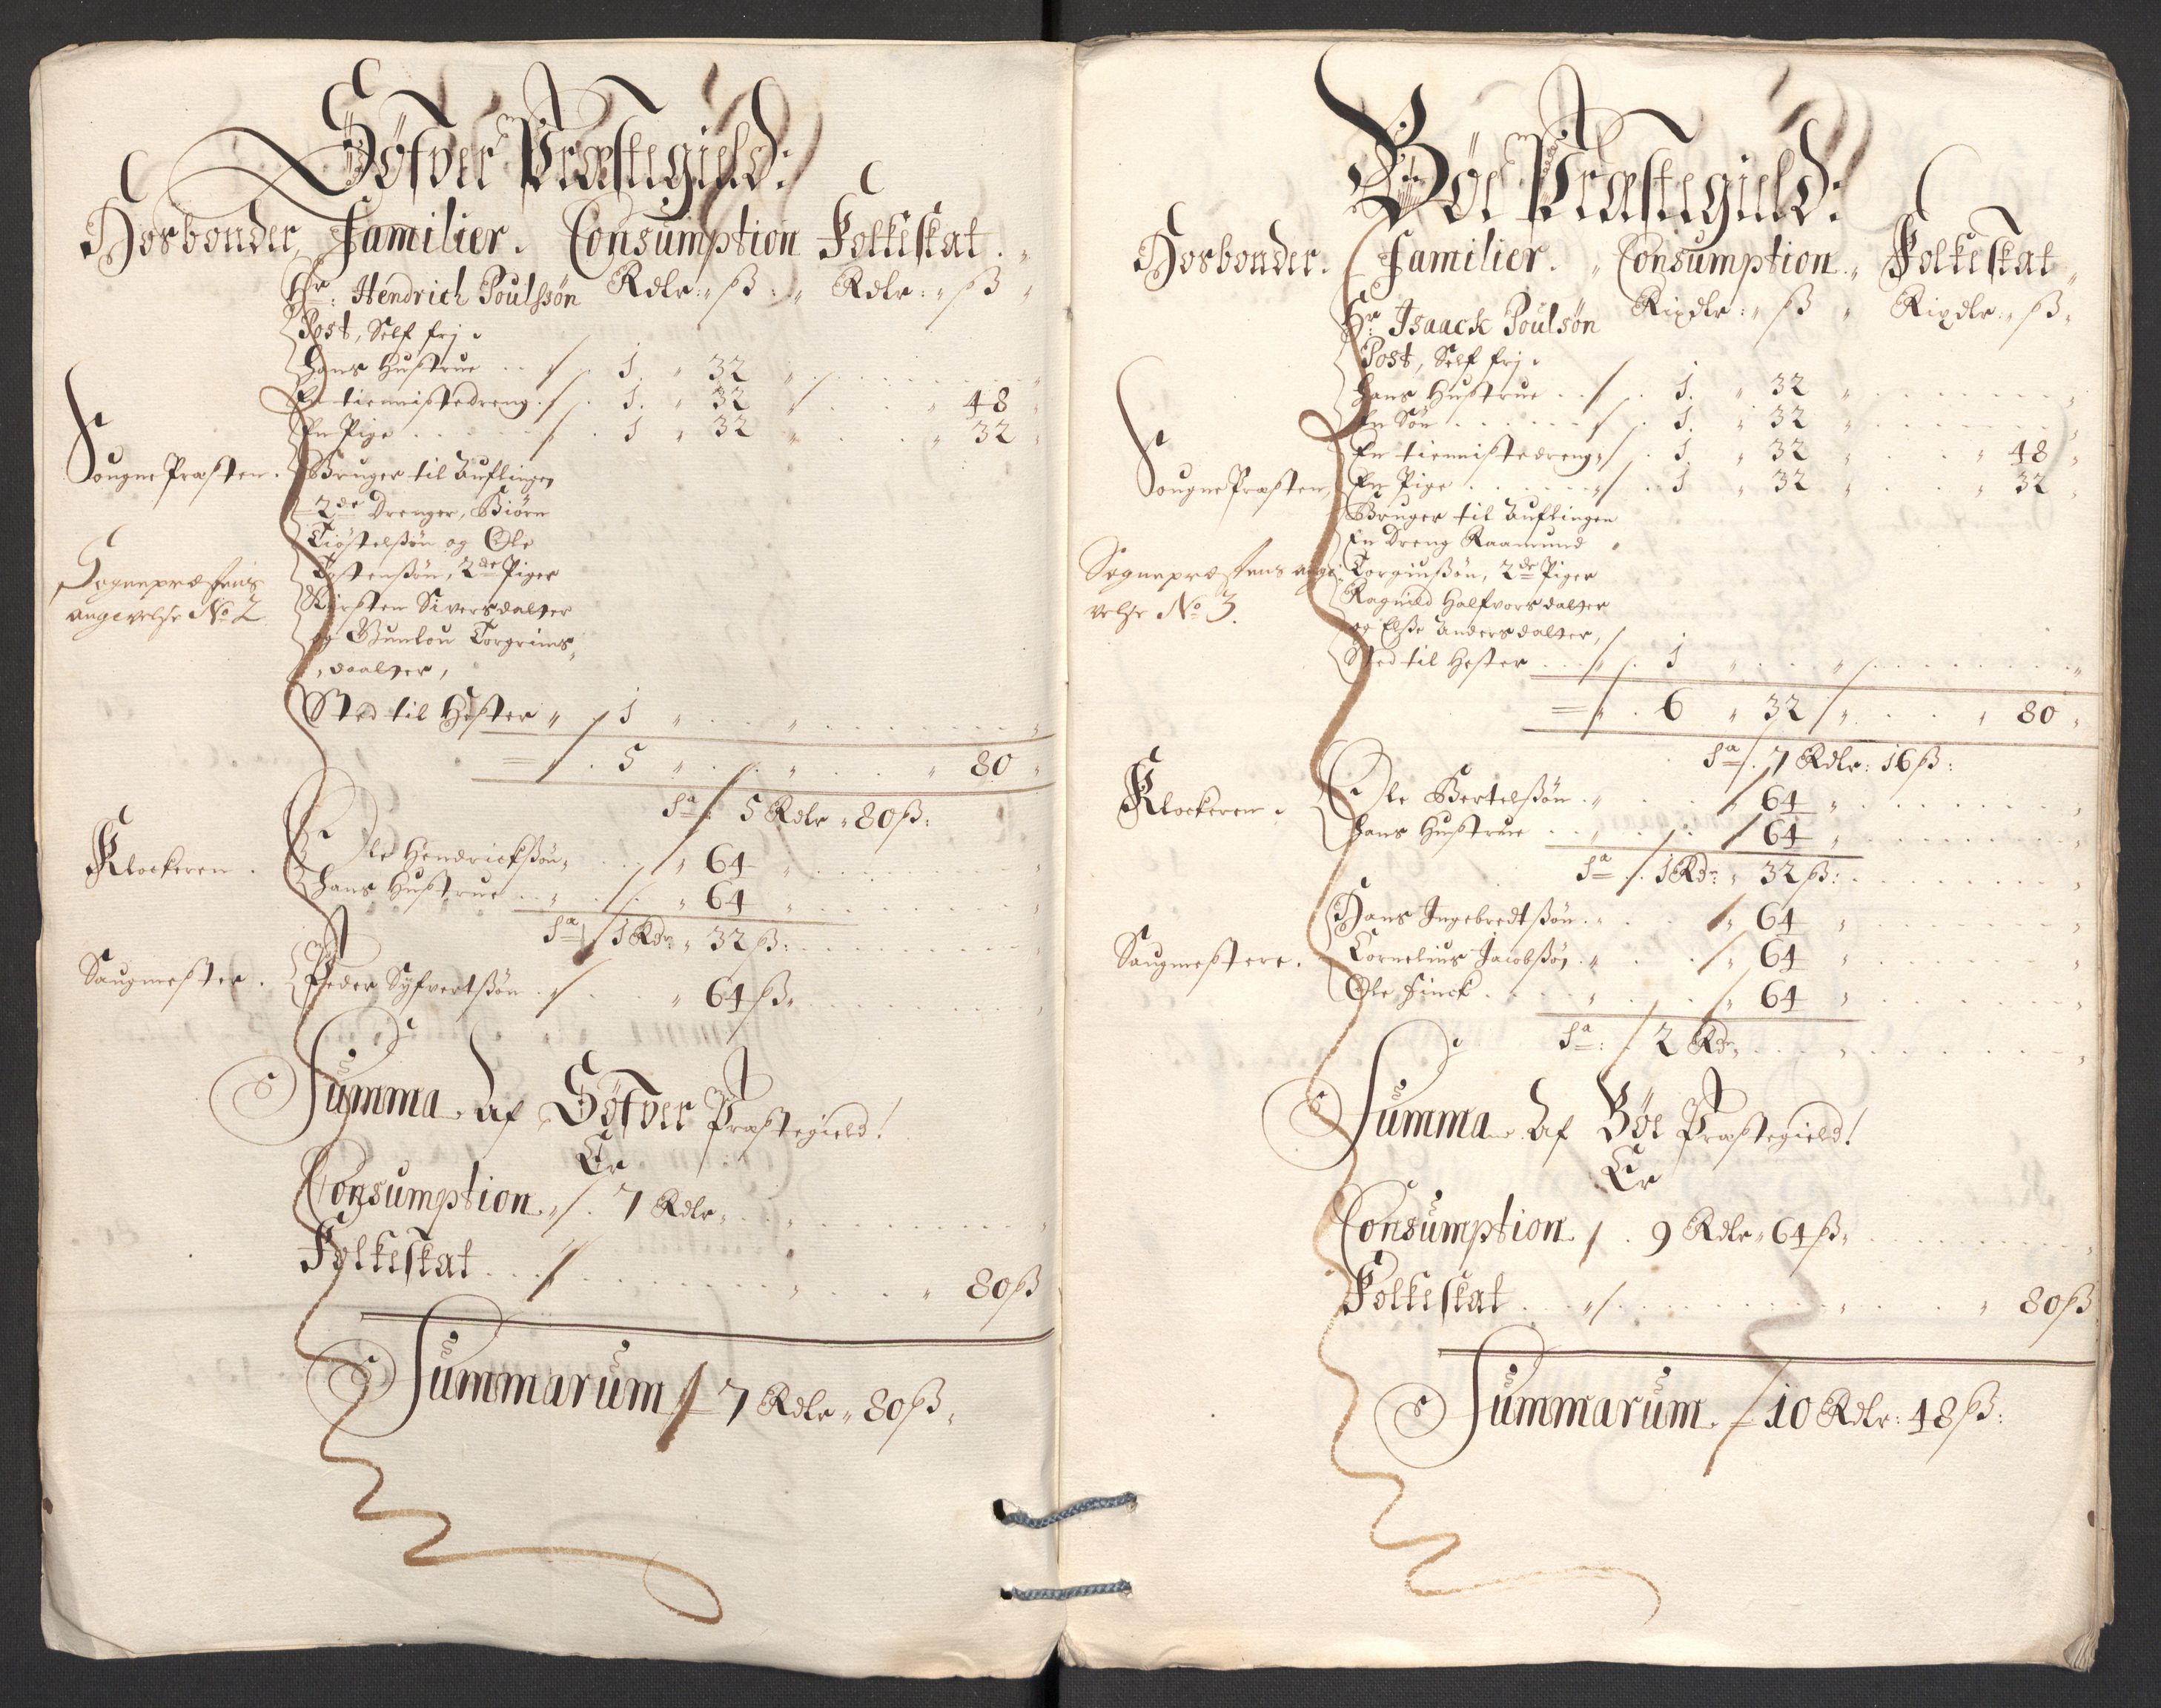 Høfver Præstegield:
Hosbonder Familier. Consumption Folkeskat.
Hr: Hendrich Poulssøn Rdlr: ß: Rdlr: ß
Post, Self frj.
Hans Hustrue . . 1. 32
En tiennistedreng. 1. 32 48
En Pige . . . 1 32 32
SougnePræsten. Bruger til Auflingen
2de Drenger, Biørn
Tiøstelssøn og Ole
Sognepræstens
angivelse No 2
Tostenssøn, 2de Piger
Kirsten Siversdatter
og Gunlou Torgrims
daatter,
Sted til Hester 1
= 5 80
Sa 5 Rdlr 80 ß:
Klockeren. Ole Hendrickssøn 64
Hans Hustrue . . 64
Sa 1 Rdr 32 ß:
Saugmester. Peder Syfvertssøn 64 ß
Summa Af Høfver Præstegield!
Er
Consumption 7 Rdlr
Folkeskat 80 ß
Summarum 7 Rdlr 80 ß
Bøe Præstegield:
Hosbonder. Familier. Consumption Folkeskat
Hr Isaack Poulsøn Rixdlr: ß Rixdlr: ß
Post, Self frj.
Hans Hustrue . . 1. 32
En Søn . . . 1. 32
En tiennistedreng 1. 32 48
SougnePræsten, En Pige . . . 1 32 32
Bruger til Auflingen
En Dreng Raamund
Sognepræstens angi-
velse No 3.
Torgiussøn, 2de Piger
Ragnild Halfvorsdatter
og Else Andersdatter,
Sted til Hester . . 1
= 6 32 80
Sa 7 Rdlr: 16 ß:
Klockeren. Ole Bertelssøn 64
Hans Hustrue . . 64
Sa 1 Rdr 32 ß:
Hans Ingebredtssøn 64
Saugmestere. Cornelius Jacobssøn 64
Ole Finck . . . 64
Sa: 2 Rdr
Summa Af Bøe Præstegield!
Er
Consumption 9 Rdlr 64 ß
Folkeskat 80 ß
Summarum 10 Rdlr: 48 ß: